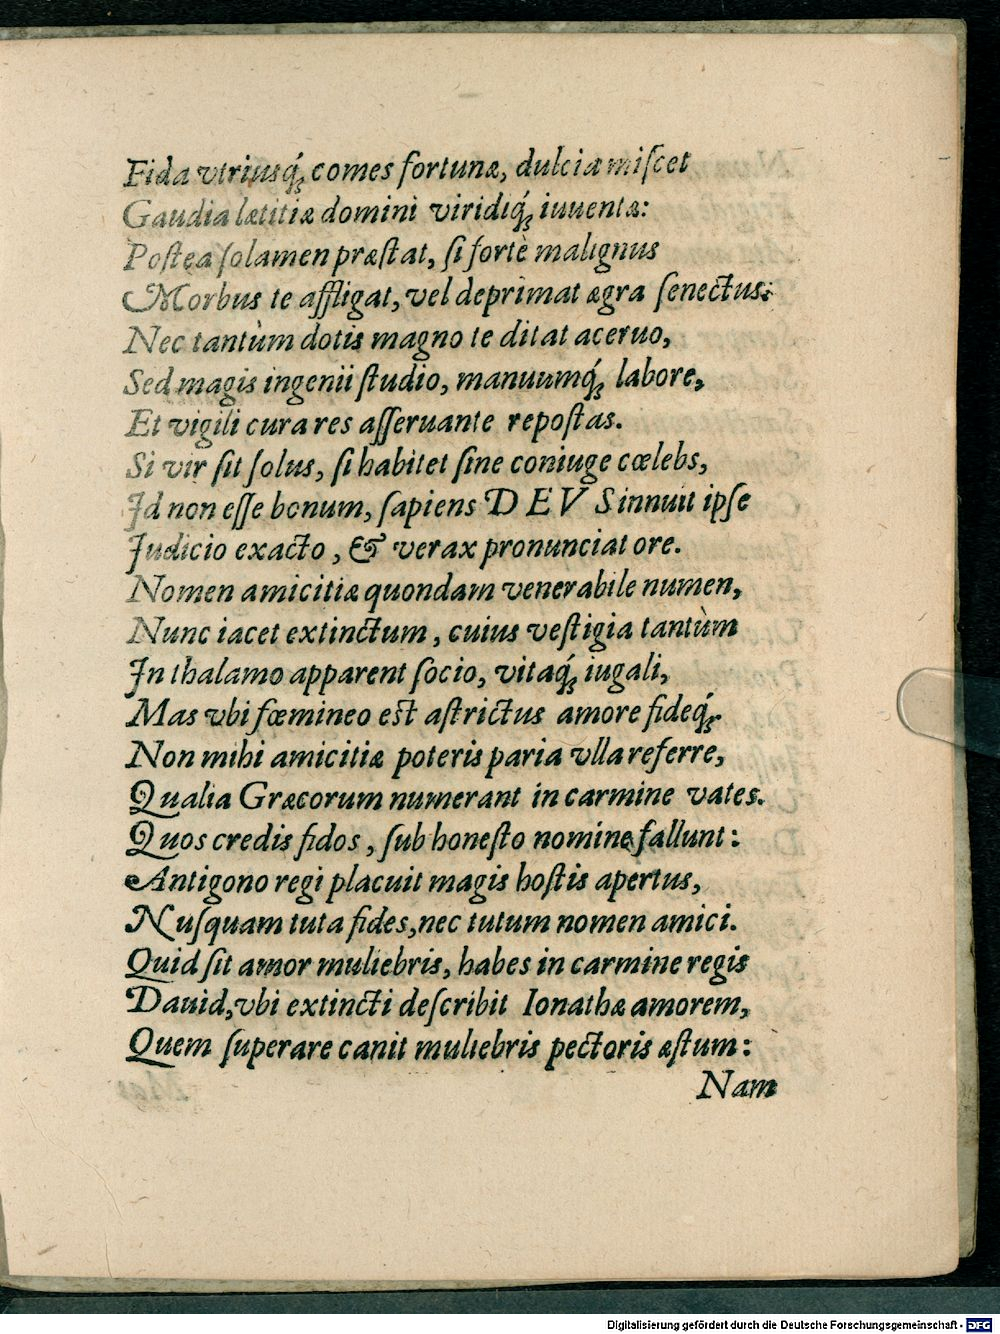 Fida vtriusq́; comes fortunæ, dulcia miſcet
Gaudia lætitiæ domini viridiq́; iuuentæ:
Poſtea ſolamen præſtat, ſi fortè malignus
Morbus te affligat, vel deprimat ægra ſenectus:
Nec tantùm dotis magno te ditat aceruo,
Sed magis ingenii ſtudio, manuumq́; labore,
Et vigili cura res aſſeruante repoſtas.
Si vir ſit ſolus, ſi habitet ſine coniuge cœlebs,
Id non eſſe bonum, ſapiens DEVS innuit ipſe
Judicio exacto, & verax pronunciat ore.
Nomen amicitiæ quondam venerabile numen,
Nunc iacet extinctum, cuius veſtigia tantùm
In thalamo apparent ſocio, vitaq́; iugali,
Mas vbi fœmineo est aſtrictus amore fideq́;.
Non mihi amicitiæ poteris paria vlla referre,
Qualia Græcorum numerant in carmine vates.
Quos credis fidos, ſub honeſto nomine fallunt:
Antigono regi placuit magis hoſtis apertus,
Nuſquam tuta fides, nec tutum nomen amici.
Quid ſit amor muliebris, habes in carmine regis
Dauid, vbi extincti deſcribit Ionathæ amorem,
Quem ſuperare canit muliebris pectoris æſtum:
Nam
Digitalisierung gefördert durch die Deutsche Forschungsgemeinschaft - DFG